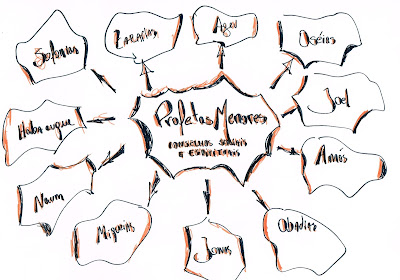 Sofonias
Zacarias
Ageu
Oséias
Habacuque
Profetas Menores
conselhos sociais
e espirituais
Joel
Naum
Amós
Miquéias
Jonas
Obadias